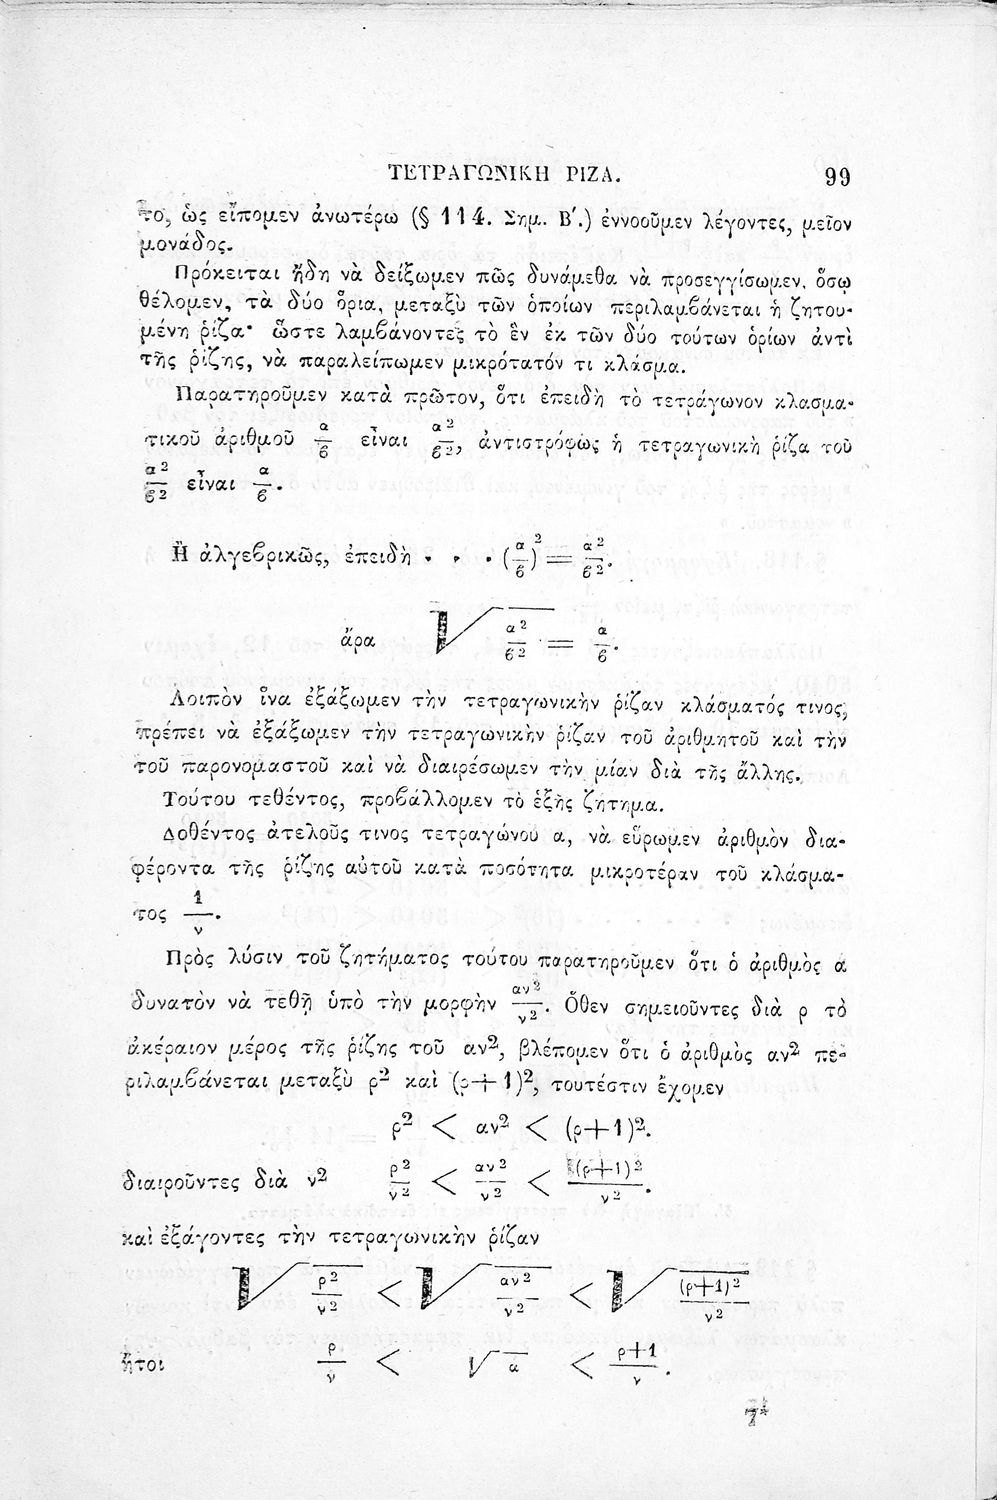 ΤΕΤΡΑΓΩΝΙΚΗ ΡΙΖΑ. 99
το, ὡς εἴπομεν ἀνωτέρω (§ 114. Σημ. Β΄.) ἐννοοῦμεν λέγοντες, μεῖον
μονάδος.
Πρόκειται ἤδη νὰ δείξωμεν πῶς δυνάμεθα νὰ προσεγγίσωμεν, ὅσῳ
θέλομεν, τὰ δύο ὅρια, μεταξὺ τῶν ὁποίων περιλαμβάνεται ἡ ζητου-
μένη ῥίζα· ὥστε λαμβάνοντες τὸ ἓν ἐκ τῶν δύο τούτων ὁρίων ἀντὶ
τῆς ῥίζης, νὰ παραλείπωμεν μικρότατόν τι κλάσμα.
Παρατηροῦμεν κατὰ πρῶτον, ὅτι ἐπειδὴ τὸ τετράγωνον κλασμα-
τικοῦ ἀριθμοῦ α/β εἶναι α²/β², ἀντιστρόφως ἡ τετραγωνικὴ ῥίζα τοῦ
α²/β² εἶναι α/β.
Ἢ ἀλγεβρικῶς, ἐπειδὴ . . . (α/β)² = α²/β².
ἄρα √(α²/β²) = α/β.
Λοιπὸν ἵνα ἐξάξωμεν τὴν τετραγωνικὴν ῥίζαν κλάσματός τινος,
πρέπει νὰ ἐξάξωμεν τὴν τετραγωνικὴν ῥίζαν τοῦ ἀριθμητοῦ καὶ τὴν
τοῦ παρονομαστοῦ καὶ νὰ διαιρέσωμεν τὴν μίαν διὰ τῆς ἄλλης.
Τούτου τεθέντος, προβάλλομεν τὸ ἑξῆς ζήτημα.
Δοθέντος ἀτελοῦς τινος τετραγώνου α, νὰ εὕρωμεν ἀριθμὸν δια-
φέροντα τῆς ῥίζης αὐτοῦ κατὰ ποσότητα μικροτέραν τοῦ κλάσμα-
τος 1/ν.
Πρὸς λύσιν τοῦ ζητήματος τούτου παρατηροῦμεν ὅτι ὁ ἀριθμὸς α
δυνατὸν νὰ τεθῇ ὑπὸ τὴν μορφὴν αν²/ν². Ὅθεν σημειοῦντες διὰ ρ τὸ
ἀκέραιον μέρος τῆς ῥίζης τοῦ αν², βλέπομεν ὅτι ὁ ἀριθμὸς αν² πε-
ριλαμβάνεται μεταξὺ ρ² καὶ (ρ+1)², τουτέστιν ἔχομεν
ρ² < αν² < (ρ+1)².
διαιροῦντες διὰ ν² ρ²/ν² < αν²/ν² < (ρ+1)²/ν².
καὶ ἐξάγοντες τὴν τετραγωνικὴν ῥίζαν
√(ρ²/ν²) < √(αν²/ν²) < √((ρ+1)²/ν²)
ἤτοι ρ/ν < √α < ρ+1/ν.